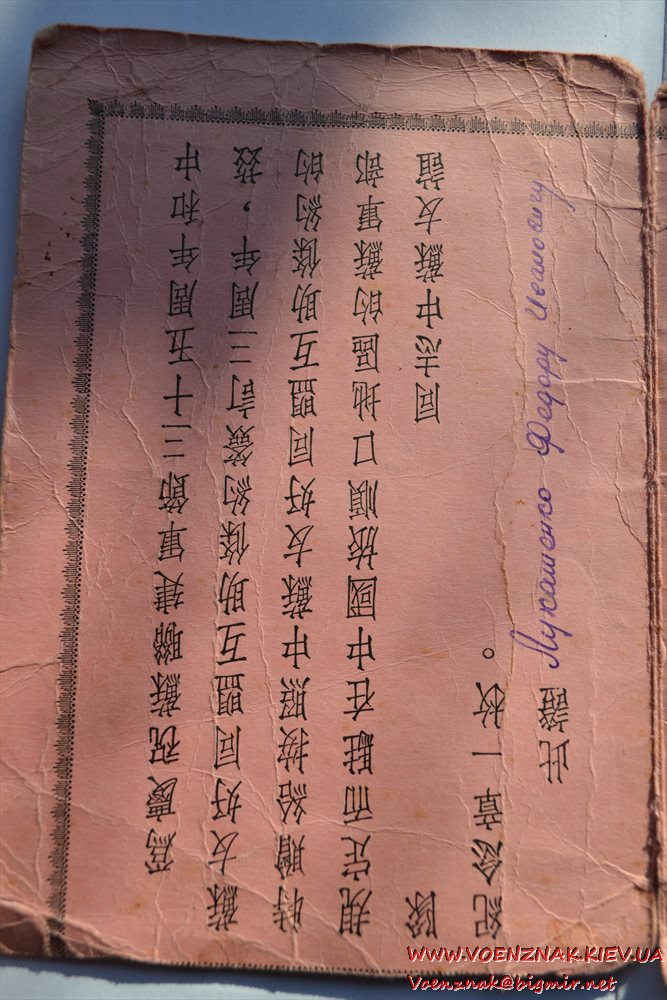 為慶祝蘇聯建軍節三十五周年和中
蘇友好同盟互助條約簽訂三周年，茲
特贈給按照中蘇友好同盟互助條約的
規定而駐在中國旅順口地區的蘇軍部
隊 同志中蘇友誼
紀念章一枚。
此證 Лукашенко Федору Ивановичу
WWW.VOENZNAK.KIEV.UA
Voenznak@bigmir.net